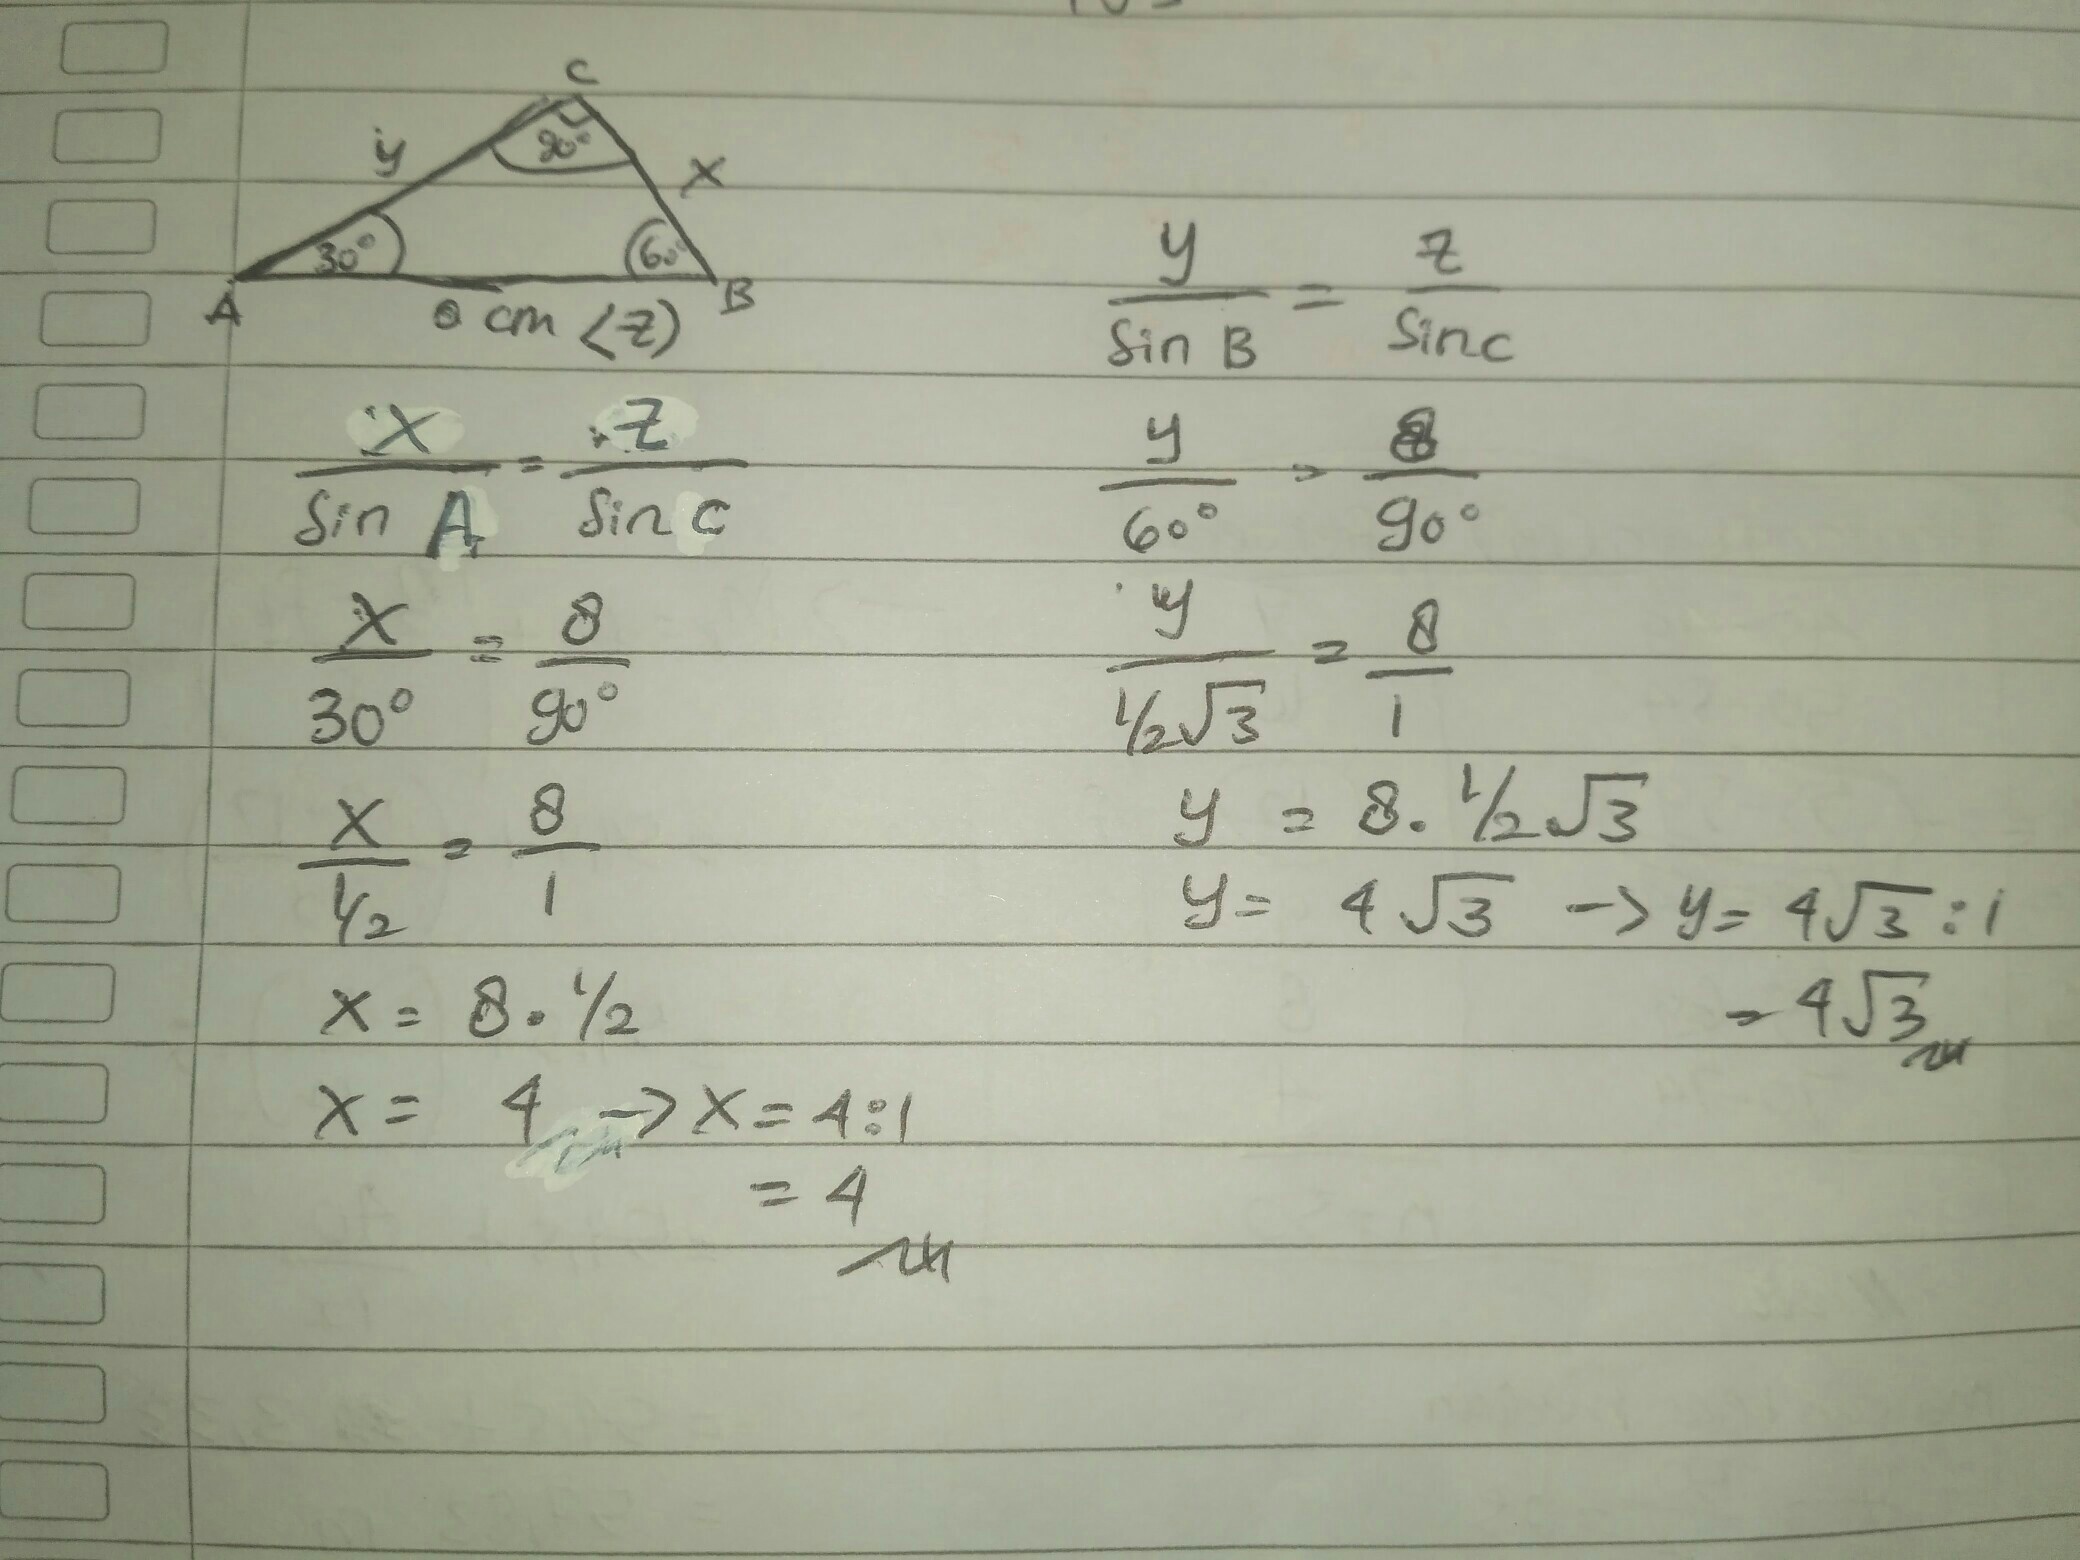 C
y
90°
x
30°
60°
A
B
8 cm (z)
x / sin A = z / sin C
x / 30° = 8 / 90°
x / 1/2 = 8 / 1
x = 8 . 1/2
x = 4 -> x = 4 : 1
= 4
y / sin B = z / sin C
y / 60° = 8 / 90°
y / 1/2√3 = 8 / 1
y = 8 . 1/2√3
y = 4√3 -> y = 4√3 : 1
= 4√3